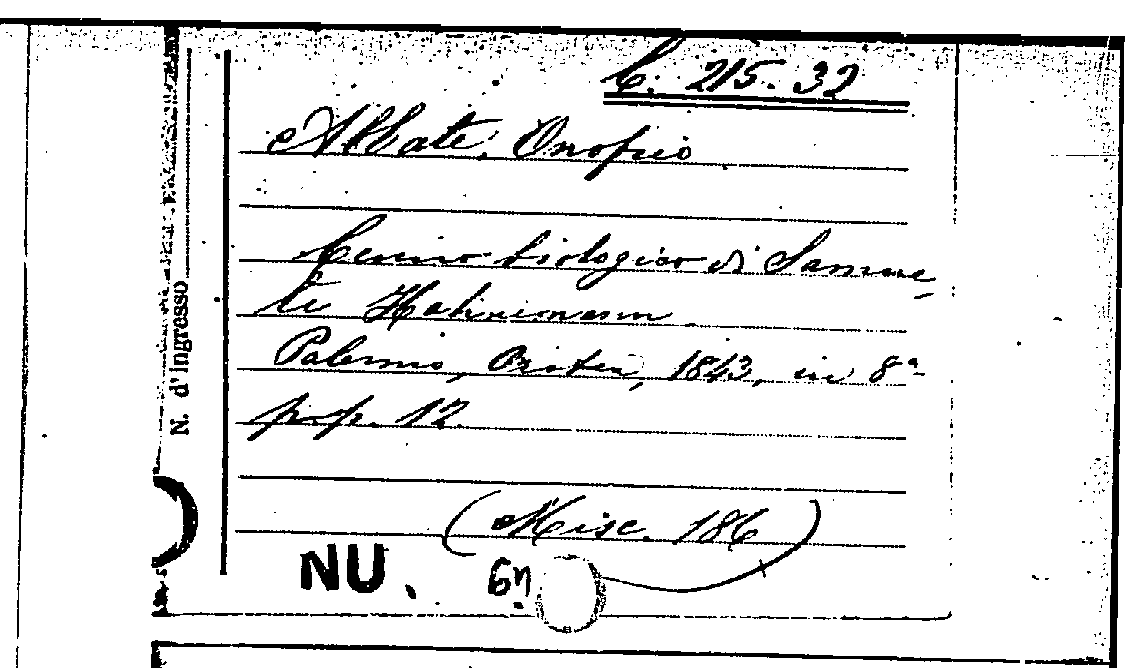 C. 215. 32
Abbate, Onofrio
Cenno biologico di Samue-
le Hahnemann.
Palermo, 1843, in 8º
pp. 12.
(Misc. 186)
NU. 6
N. d'ingresso